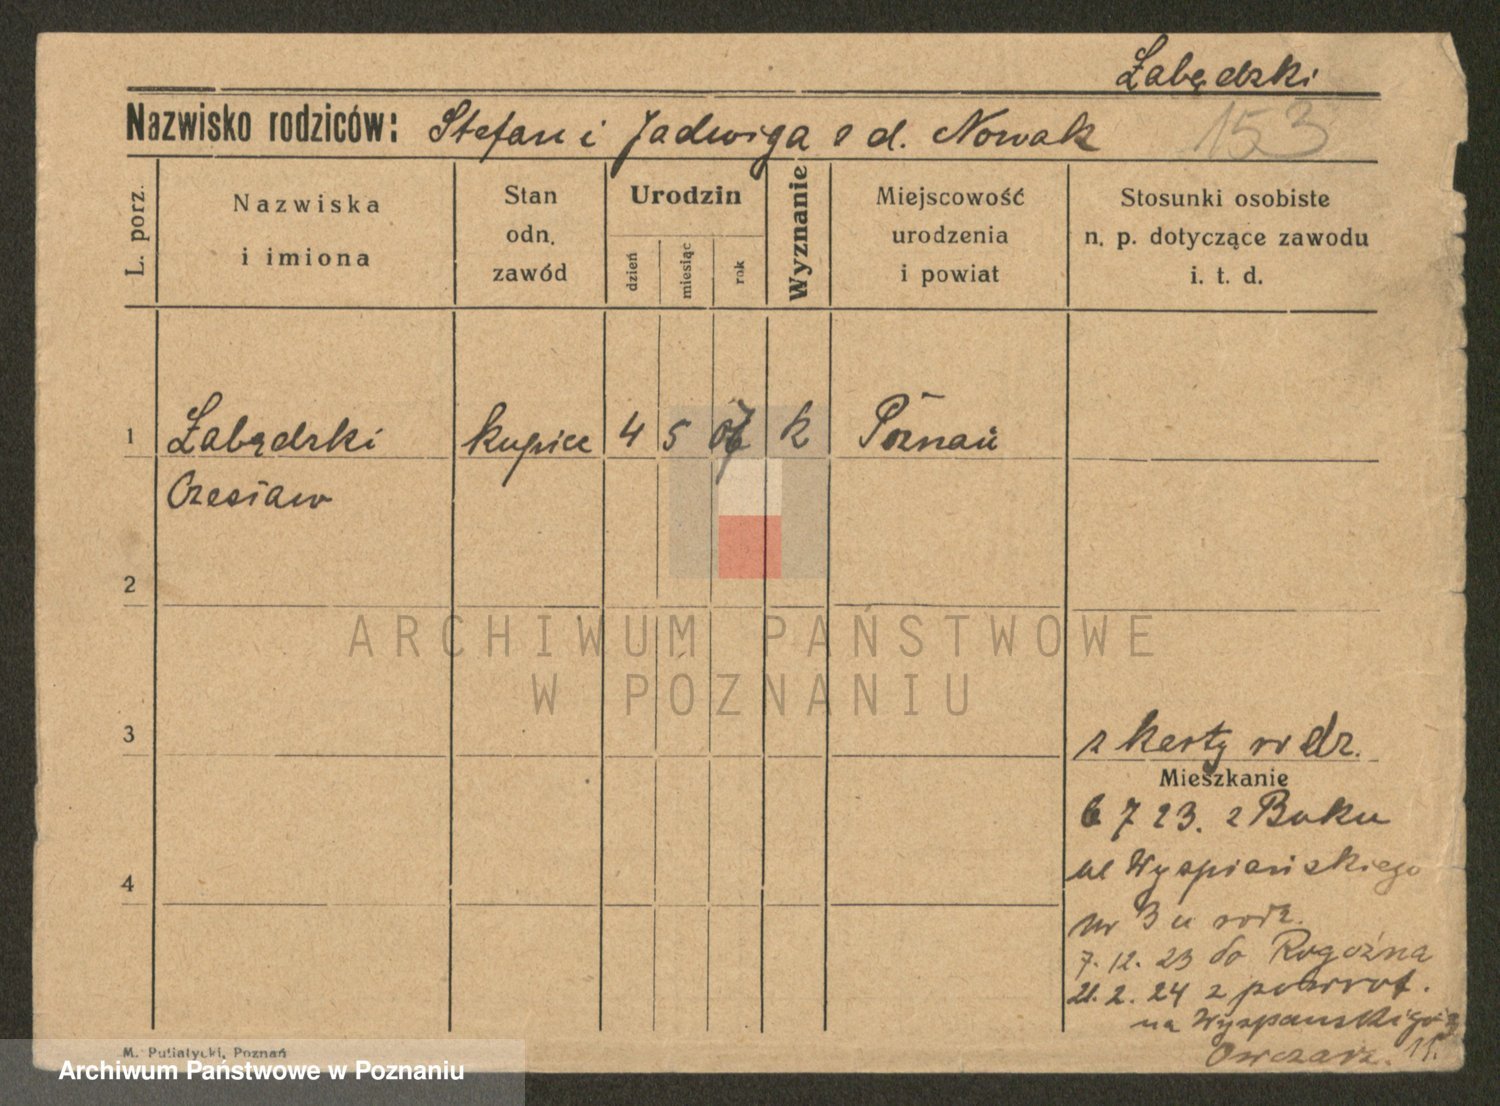 Żabędzki
Nazwisko rodziców: Stefan i Jadwiga z d. Nowak
153
L. porz.
Nazwiska
i imiona
Stan
odn.
zawód
Urodzin
dzień
miesiąc
rok
Wyznanie
Miejscowość
urodzenia
i powiat
Stosunki osobiste
n. p. dotyczące zawodu
i. t. d.
1
Żabędzki kupiec 4 5 k Poznań
Czesław
2
ARCHIWUM PAŃSTWOWE
W POZNANIU
3
z karty rodz.
Mieszkanie
6 7 23. z Buku
4
ul Wyspiańskiego
nr 3 u rodz.
7. 12. 23 do Rogoźna
21. 2. 24 z powrot.
na Wyspańskiego
M. Putiatycki, Poznań
Archiwum Państwowe w Poznaniu